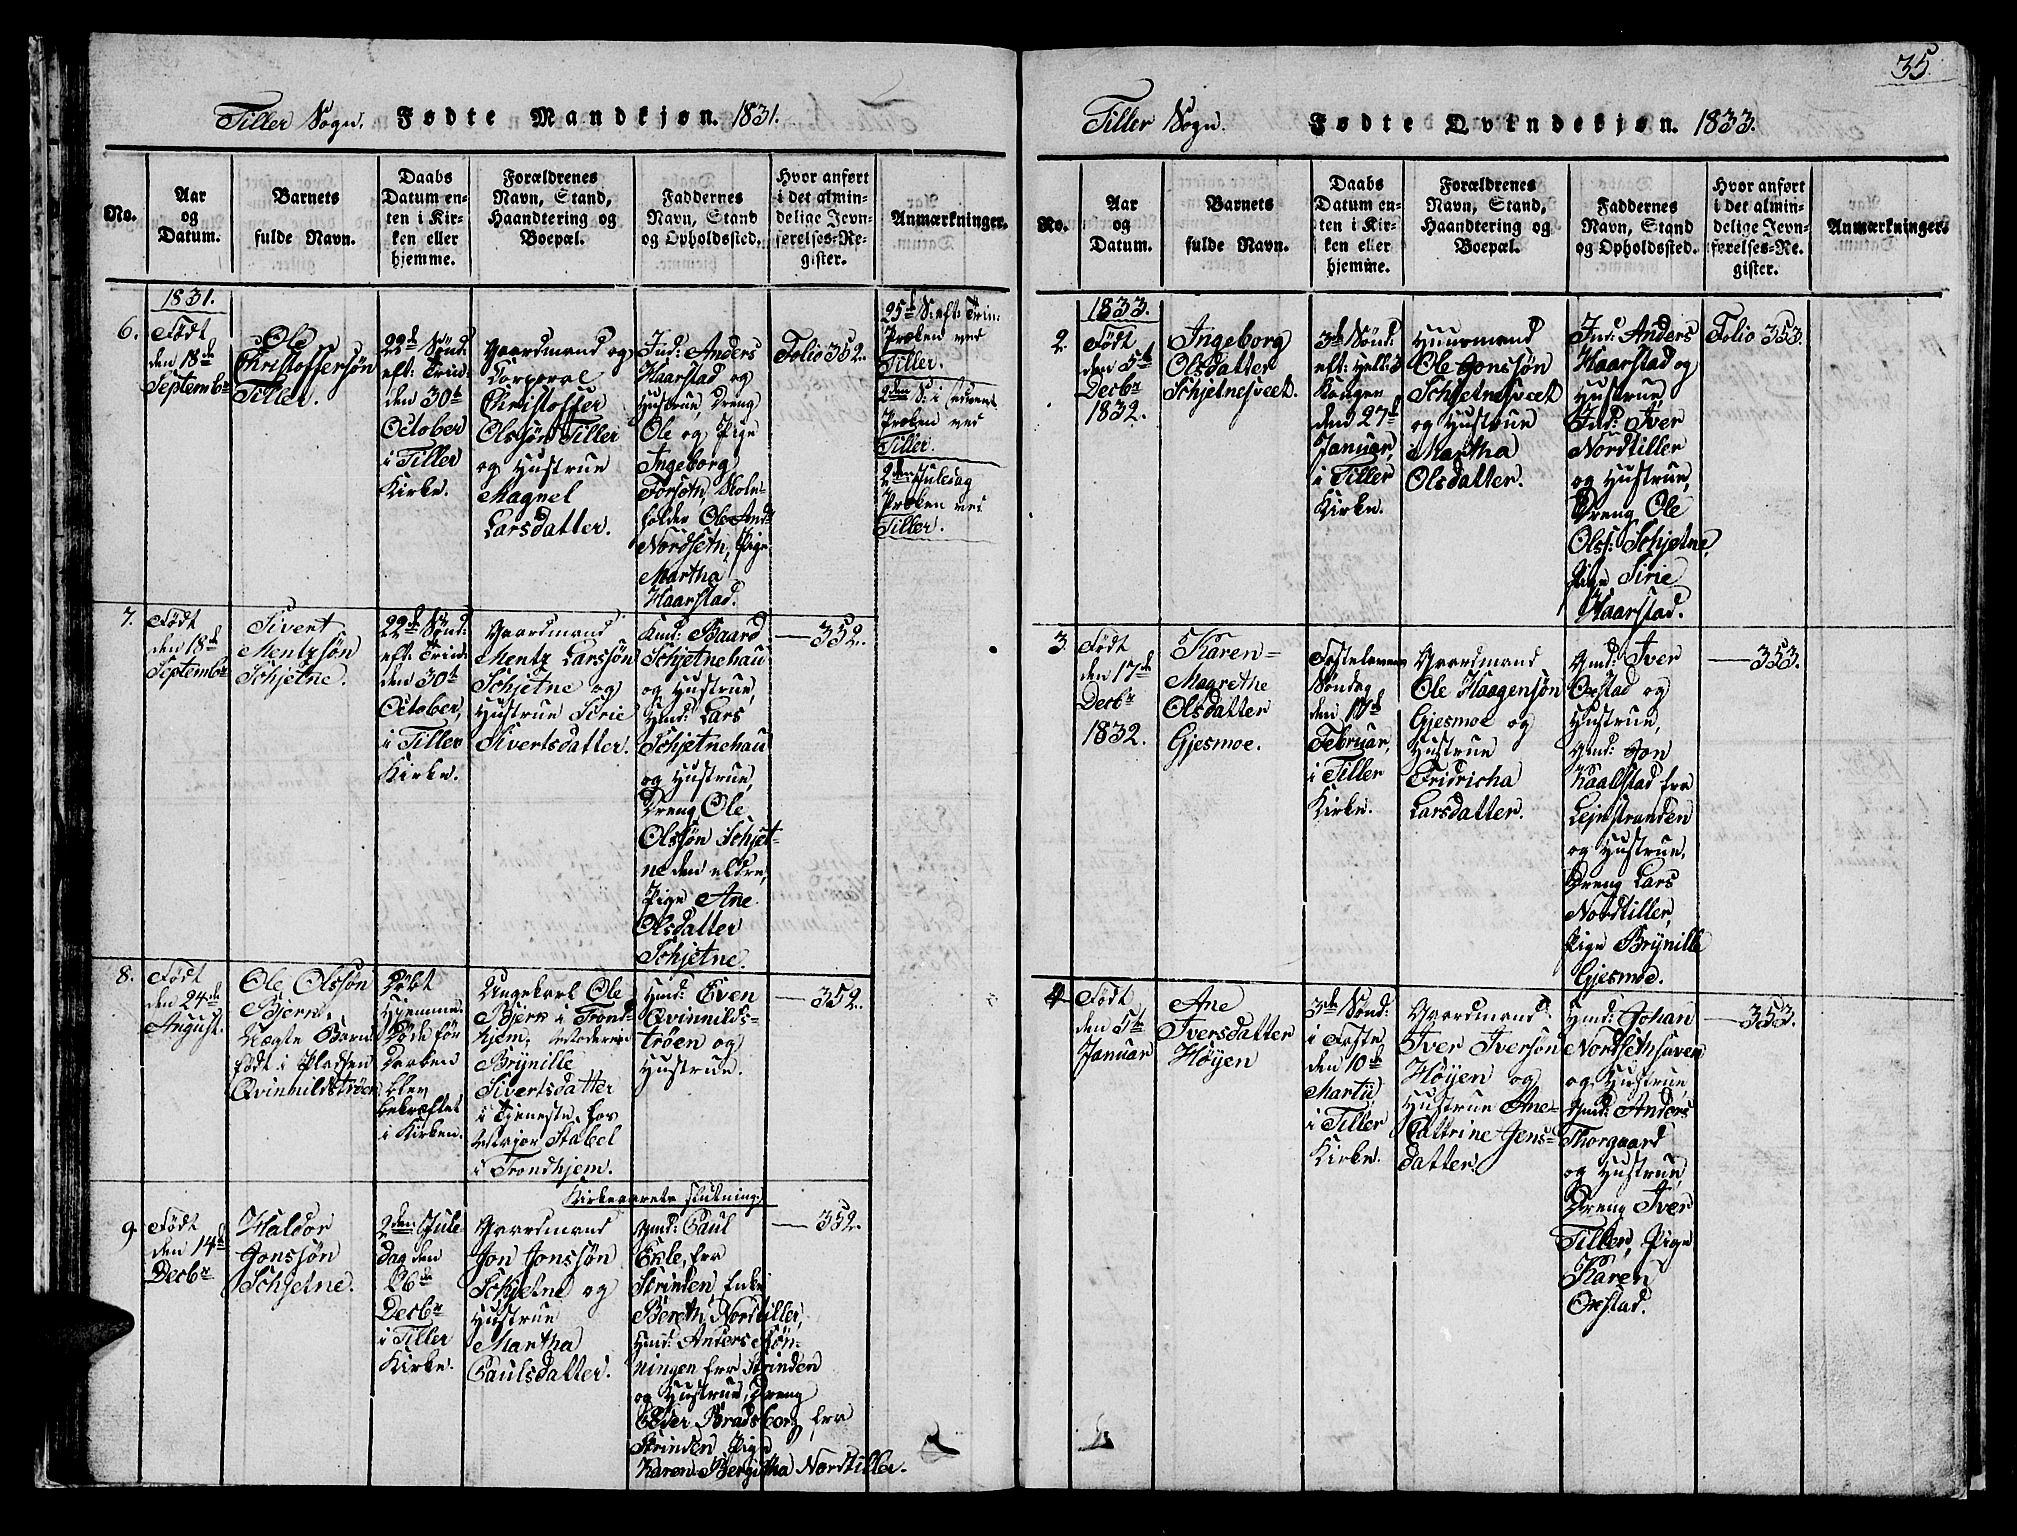 Tiller Sogn. Fødte Mandkjøn. 1831.
No.
Aar
og
Datum.
Barnets
fulde Navn.
Daabs
Datum en-
ten i Kir-
ken eller
hjemme.
Forældrenes
Navn, Stand,
Haandtering og
Boepæl.
Faddernes
Navn, Stand
og Opholdssted.
Hvor anført
i det almin-
delige Jevn-
førelses-Re-
gister.
Anmærkninger.
1831.
6.
Født
den 18de
Septembr
Ole
Christoffersøn
Tiller.
22de Sönd:
eft: Trin:
den 30te
October
i Tiller
Kirke.
Gaardmand og
Corporal
Christoffer
Olssøn Tiller
og Hustrue
Magnel
Larsdatter.
Ind: Anders
Haarstad og
Hustrue Dreng
Ole og Pige
Ingeborg
Forseth, Skole-
holder Ole And:
Nordseth, Pige
Martha
Haarstad.
Folio 352.
25de S: eft: Trin:
Præken ved
Tiller.
2den S: i Advent
Præken ved
Tiller.
2den Juledag
Præken ved
Tiller.
7.
Født
den 18de
Septembr
Sivert
Mentzsøn
Schjetne.
22de Sönd:
eft: Trin:
den 30te
October,
i Tiller
Kirke.
Gaardmand
Mentz Larssøn
Schjetne og
Hustrue Sirie
Sivertsdatter.
Hmd: Baard
Schjetnehau
og Hustrue,
Hmd: Lars
Schjetnehau
og Hustrue,
Dreng Ole
Olssøn Schjet-
ne den eldre,
Pige Ane
Olsdatter
Schjetne.
— 352.
8.
Født
den 24de
August.
Ole Olssøn
Bjerk.
Uægte Barn
født i Pladsen
Qvinhildstrøen
Döbt
Hjemme.
Döde før
Daaben
blev
bekræftet
i Kirken.
Ungekarl Ole
Bjerk i Trond-
hjem, Moderen
Brynille
Sivertsdatter
i Tjeneste hos
Major Stabel
i Trondhjem.
Hmd: Even
Qvinnilds-
trøen og
Hustrue.
— 352.
Kirkeaarets slutning.
9.
Født
den 14de
Decbr
Haldor
Jonssøn
Schjetne.
2den Jule-
dag den
26de
Decbr
i Tiller
Kirke.
Gaardmand
Jon Jonssøn
Schjetne og
Hustrue
Martha
Paulsdatter.
Gmd: Paul
Ekle, fra
Strinden, Enke
Bereth Nordtiller,
Hmd: Anders Røn-
ningen fra Strinden
og Hustrue, Dreng
Peder Bradsborg fra
Strinden, Pige
Karen Bergitha Nordtiller.
— 352.
35
Tiller Sogn. Fødte Qvindekjøn. 1833.
No.
Aar
og
Datum.
Barnets
fulde Navn.
Daabs
Datum en-
ten i Kir-
ken eller
hjemme.
Forældrenes
Navn, Stand,
Haandtering og
Boepæl.
Faddernes
Navn, Stand
og Opholdssted.
Hvor anført
i det almin-
delige Jevn-
førelses-Re-
gister.
Anmærkninger.
1833.
2.
Født
den 5te
Decbr
1832.
Ingeborg
Olsdatter
Schjetnesveet.
3de Sönd:
eft: Hell: 3
Konger
den 27de
Januar,
i Tiller
Kirke.
Huusmand
Ole Jonssøn
Schjetnesveet
og Hustrue
Martha
Olsdatter.
Ind: Anders
Haarstad og
Hustrue,
Ind: Iver
Nordtiller
og Hustrue,
Dreng Ole
Olss: Schjetne,
Pige Sirie
Haarstad.
Folio 353.
3.
Født
den 17de
Decbr
1832.
Karen=
Magrethe
Olsdatter
Gjesmoe.
Fastelavens
Søndag
den 17de
Februar,
i Tiller
Kirke.
Gaardmand
Ole Haagensøn
Gjesmoe og
Hustrue
Fridricha
Larsdatter.
Gmd: Iver
Oxstad og
Hustrue,
Gmd: Jon
Kaalstad fra
Lejnstranden
og Hustrue,
Dreng Lars
Nordtiller,
Pige Brynille
Gjesmoe.
— 353.
4
Født
den 5te
Januar
Ane
Iversdatter
Høyen
3de Sönd:
i Faste
den 10de
Martij
i Tiller
Kirke.
Gaardmand
Iver Iversøn
Høyen og
Hustrue Ane=
Cattrine Jens=
datter.
Hmd: Johan
Nordsethsaven
og Hustrue,
Gmd: Anders
Thorgaard
og Hustrue,
Dreng Iver
Tiller, Pige
Karen
Oxstad.
— 353.